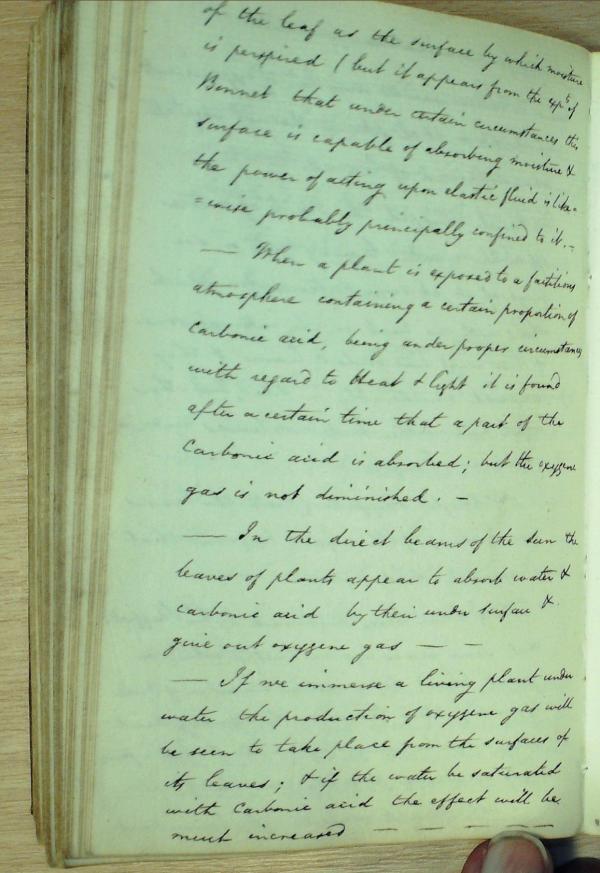 of the leaf as the surface by which moisture
is perspired ( but it appears from the expts of
Bonnet that under certain circumstances this
surface is capable of absorbing moisture &
the power of acting upon elastic fluid is like-
=wise probably principally confined to it. -
— When a plant is exposed to a factitious
atmosphere containing a certain proportion of
carbonic acid, being under proper circumstances
with regard to Heat & light it is found
after a certain time that a part of the
Carbonic acid is absorbed; but the oxygene
gas is not diminished. -
— In the direct beams of the sun the
leaves of plants appear to absorb water &
carbonic acid by their under surface &
give out oxygene gas — -
— If we immerse a living plant under
water the production of oxygene gas will
be seen to take place from the surfaces of
its leaves; & if the water be saturated
with Carbonic acid the effect will be
much increased — — — — —